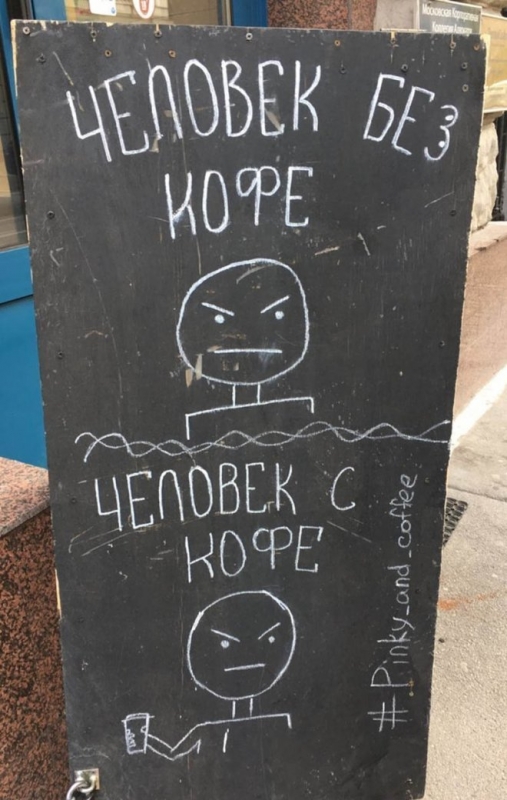 Московская Корпоративная
Коллегия Адвокатов
ЧЕЛОВЕК БЕЗ
КОФЕ
ЧЕЛОВЕК С
КОФЕ
#Pinky_and_coffee